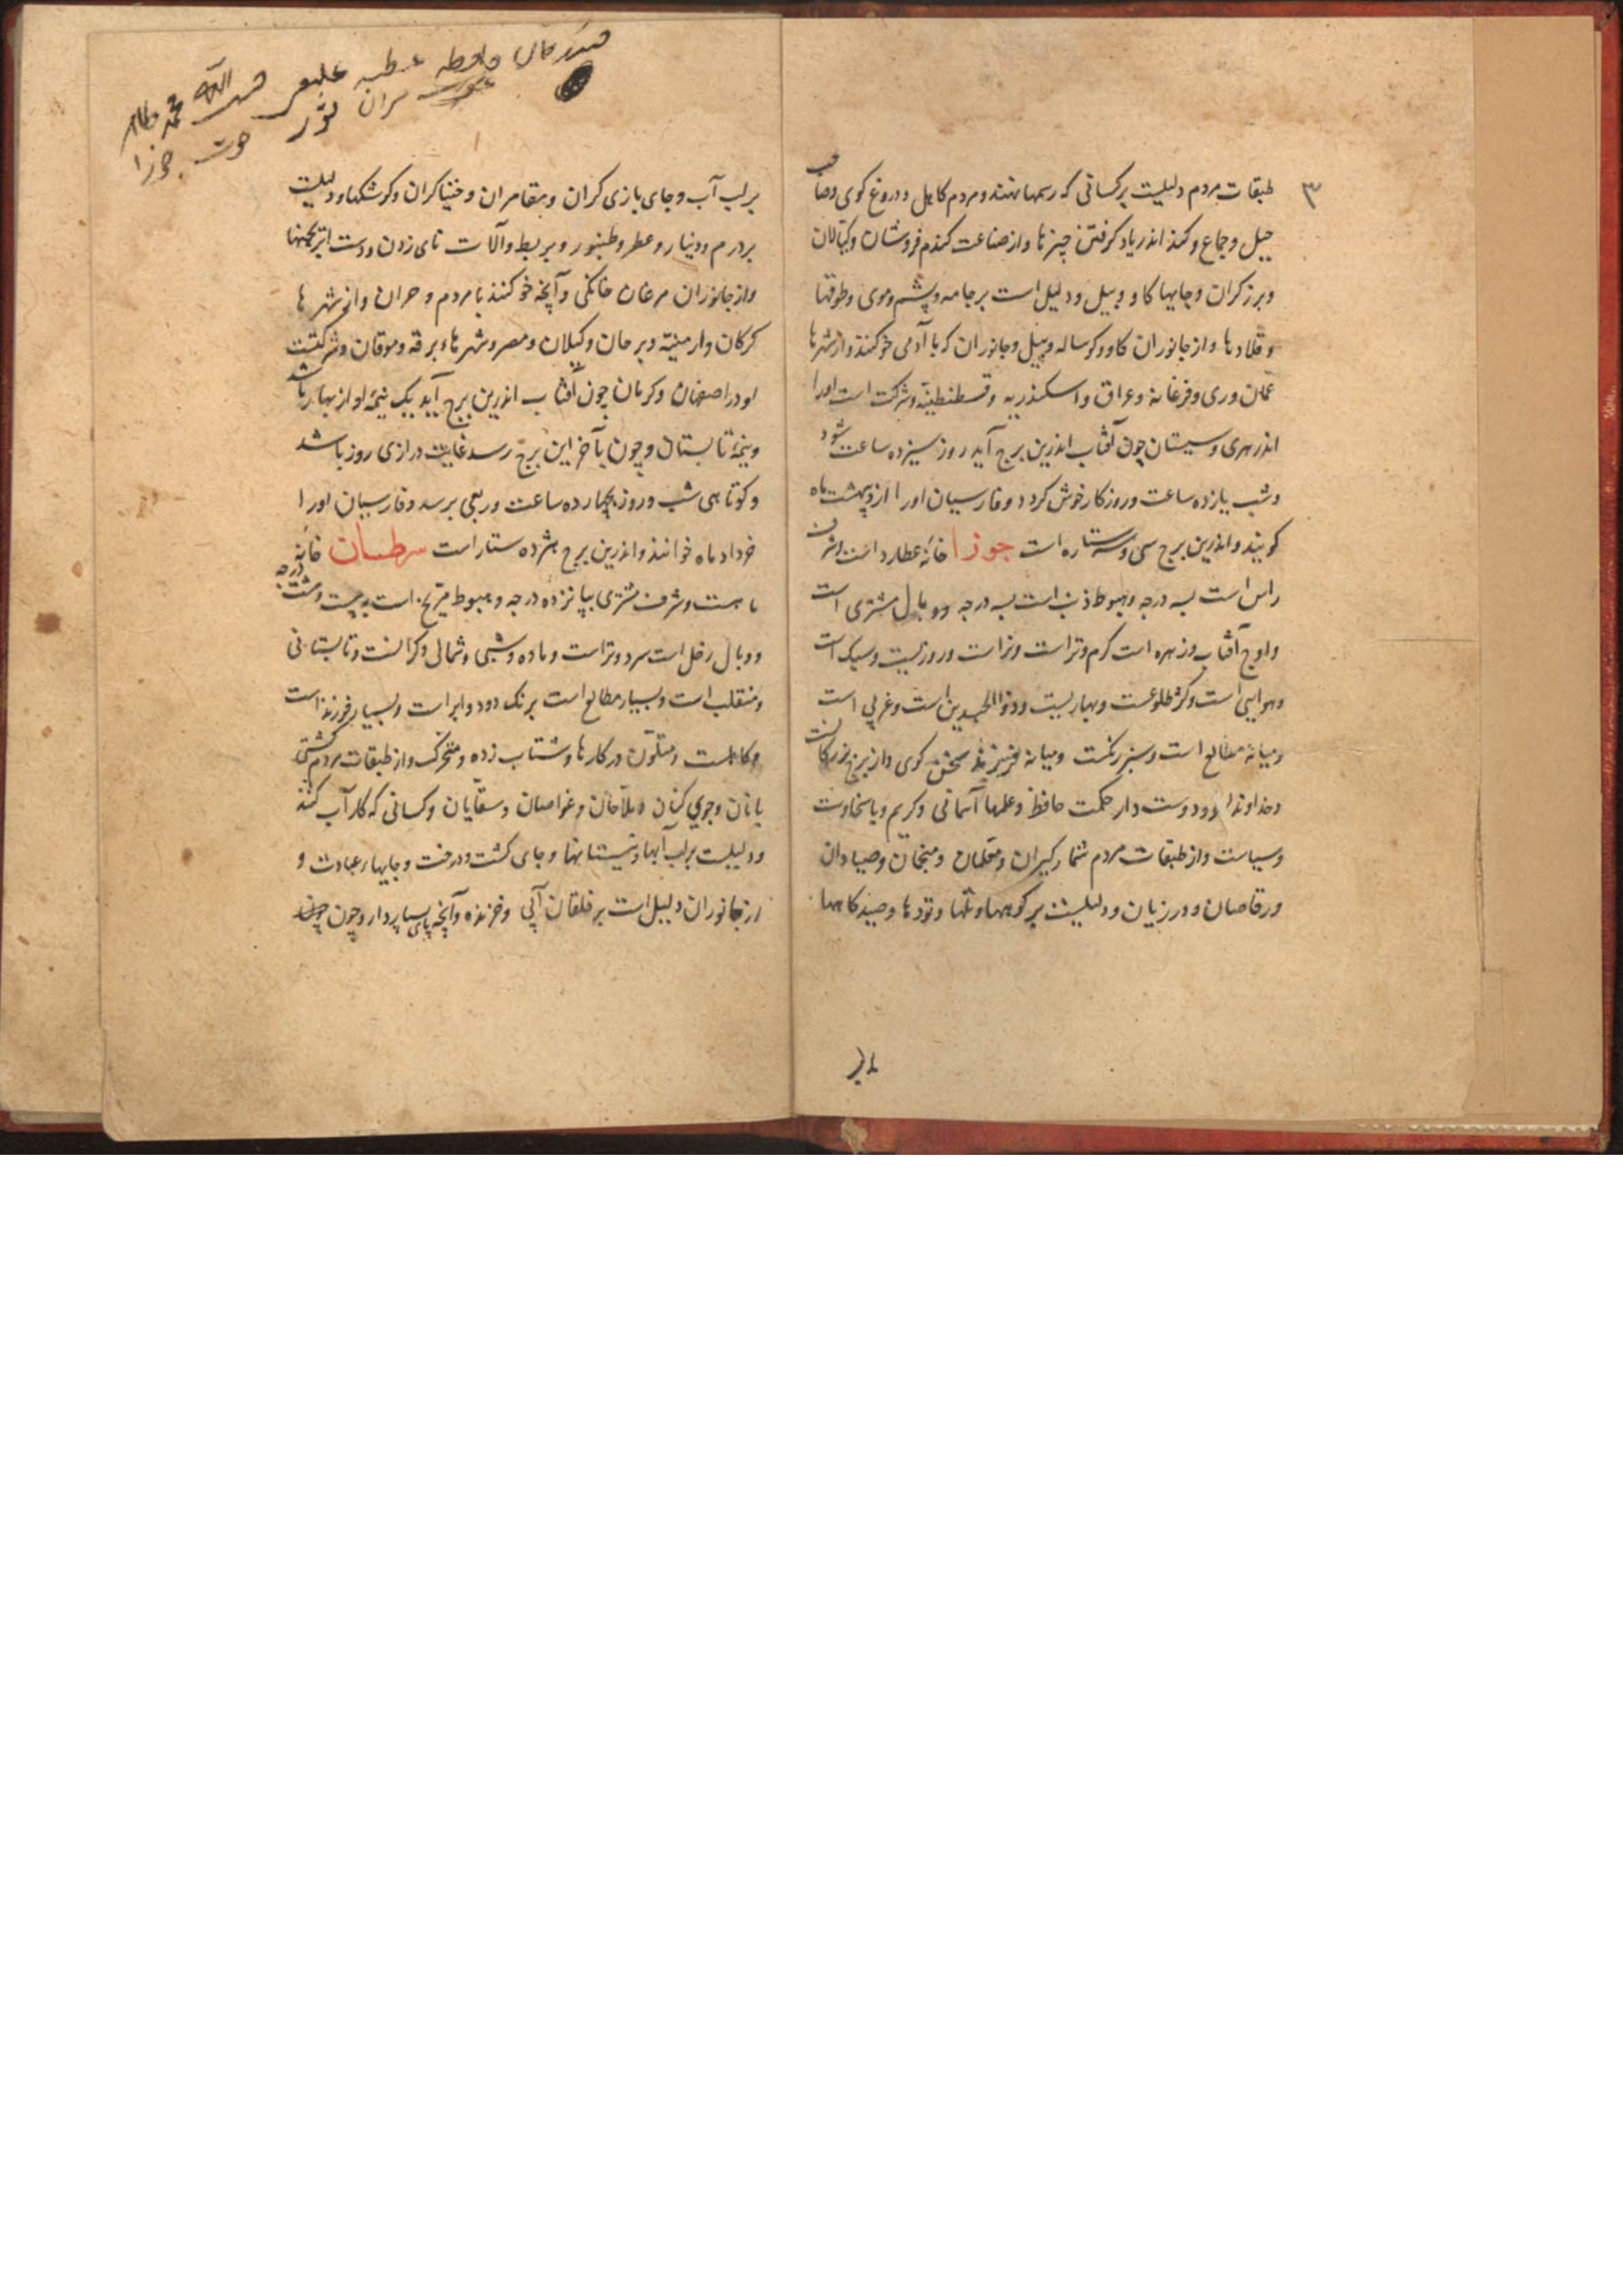 ۳
طبقات مردم دلیلست بر کسانی که رسمها نهند و مردم کاهل و دروغ کوی و صاحب
حیل و جماع و کند اندر یاد کرفتن چیزها و از صناعت کندم فروشان و کیالان
و برزکران و جایها کاو و پیل و دلیل است بر جامه و پشم و موی و طوقها
و قلادها و از جانوران کاو و کوساله و پیل و جانوران که با آدمی خو کنند و از شهرها
عمان و ری و فرغانه و عراق و اسکندریه و قسطنطینه و شرکت است او را
اندر هری و سیستان چون آفتاب اندرین برج آید روز سیزده ساعت شود
و شب یازده ساعت و روزکار خوش کردد و فارسیان او را اردیبهشت ماه
کویند و اندرین برج سی و سه ستاره است جوزا خانهٔ عطارد است و شرف
راس است بسه درجه و هبوط ذنب است بسه درجه و وبال مشتری است
و اوج آفتاب و زهره است کرم و تر است و نر است و روزیست و سبک است
و هوایی است و کژ طلوعست و بهاریست و ذوالجسدین است و غربی است
و میانه مطالع است و سبز رنکست و میانه فرزند سخن کوی و از برج بزرکان است
و خداوند دوست دار حکمت حافظ و علمها آسمانی و کریم و با سخاوت
و سیاست و از طبقات مردم شمار کیران و معلمان و منجمان و صیادان
و رقاصان و درزیان و دلیلست بر کوهها و تلها و تودها و صیدکاهها
بر لب
بر لب آب و جای بازی کران و مقامران و خنیاکران و کوشکها و دلیلست
بر درم و دینار و عطر و طنبور و بربط و آلات نای زدن و دست ابرنجنها
و از جانوران مرغان خانکی و آنچه خو کنند با مردم و حران و از شهرها
کرکان و ارمنیه و برجان و کیلان و مصر و شهرها و برقه و موقان و شرکتست
او در اصفهان و کرمان چون آفتاب اندرین برج آید یک نیمهٔ او از بهار باشد
و نیمهٔ تابستان و چون بآخر این برج رسد غایت درازی روز باشد
و کوتاهی شب و روز بچهارده ساعت و ربعی برسد و فارسیان او را
خرداد ماه خوانند و اندرین برج هژده ستار است سرطان خانهٔ
ماهست و شرف مشتری بپانزده درجه و هبوط مریخ است به بیست و هشت درجه
و وبال زحل است سرد و تر است و ماده و شبی و شمالی و کرانست و تابستانی
و منقلب است و بسیار مطالع است برنک دود و ابر است و بسیار فرزند است
و کاملست و متلون در کارها و شتاب زده و متحرک و از طبقات مردم کشتی
بانان و جوی کنان و ملاحان و غواصان و سقایان و کسانی که کار آب کنند
و دلیلست بر لب آبها و نیستانها و جای کشت و درخت و جایهاء عبادت و
از جانوران دلیل است بر خلقان آبی و خزنده و آنچه پای بسیار دارد چون